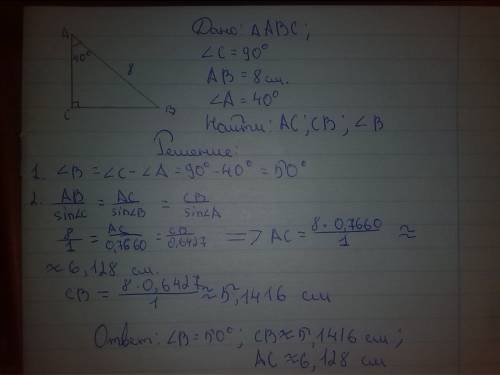 Дано: △ABC;
∠C = 90°
AB = 8 см.
∠A = 40°
Найти: AC; CB; ∠B
A
40°
8
C
B
Решение:
1. ∠B = ∠C - ∠A = 90° - 40° = 50°
2. AB/sin∠C = AC/sin∠B = CB/sin∠A
8/1 = AC/0,7660 = CB/0,6427 => AC = 8·0,7660/1 ≈
≈ 6,128 см.
CB = 8·0,6427/1 ≈ 5,1416 см
Ответ: ∠B = 50°; CB ≈ 5,1416 см;
AC ≈ 6,128 см